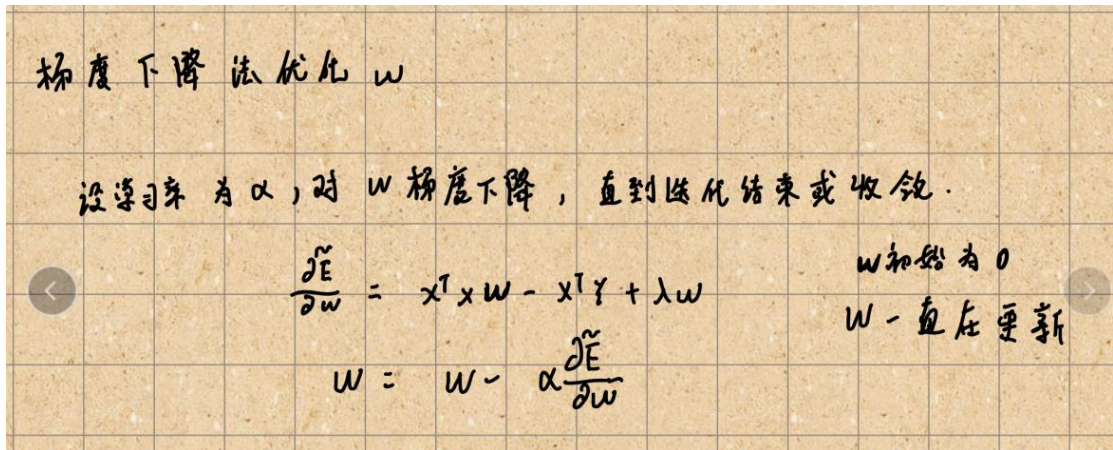 梯度下降法优化 w
设学习率为α，对 w 梯度下降，直到迭代结束或收敛.
∂Ẽ/∂w = xᵀxw - xᵀY + λw
w初始为0
w一直在更新
w = w - α ∂Ẽ/∂w